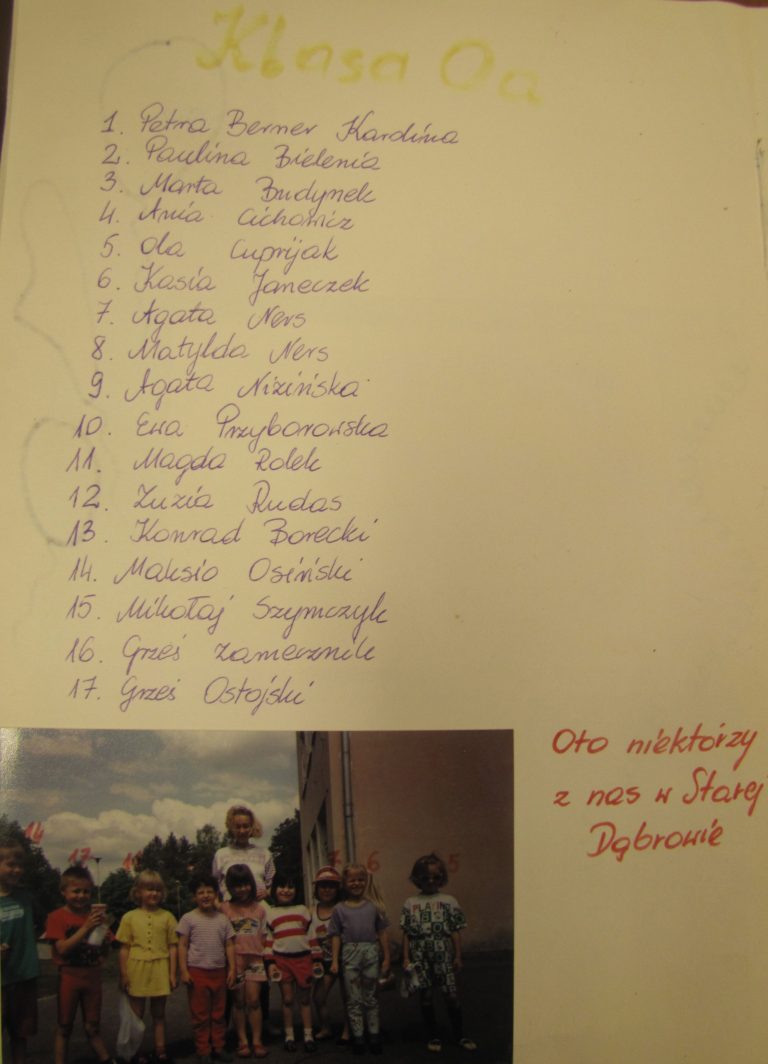 Klasa Oa
1. Petra Berner Kardina
2. Paulina Bielenia
3. Marta Budynek
4. Ania Cichowicz
5. Ola Cuprijak
6. Kasia Janeczek
7. Agata Ners
8. Matylda Ners
9. Agata Nizińska
10. Ewa Przyborowska
11. Magda Rolek
12. Zuzia Rudas
13. Konrad Borecki
14. Maksio Osiński
15. Mikołaj Szymczyk
16. Grześ Zamecznik
17. Grześ Ostojski
Oto niektórzy
z nas w Starej
Dąbrowie
14 17 7 6 5